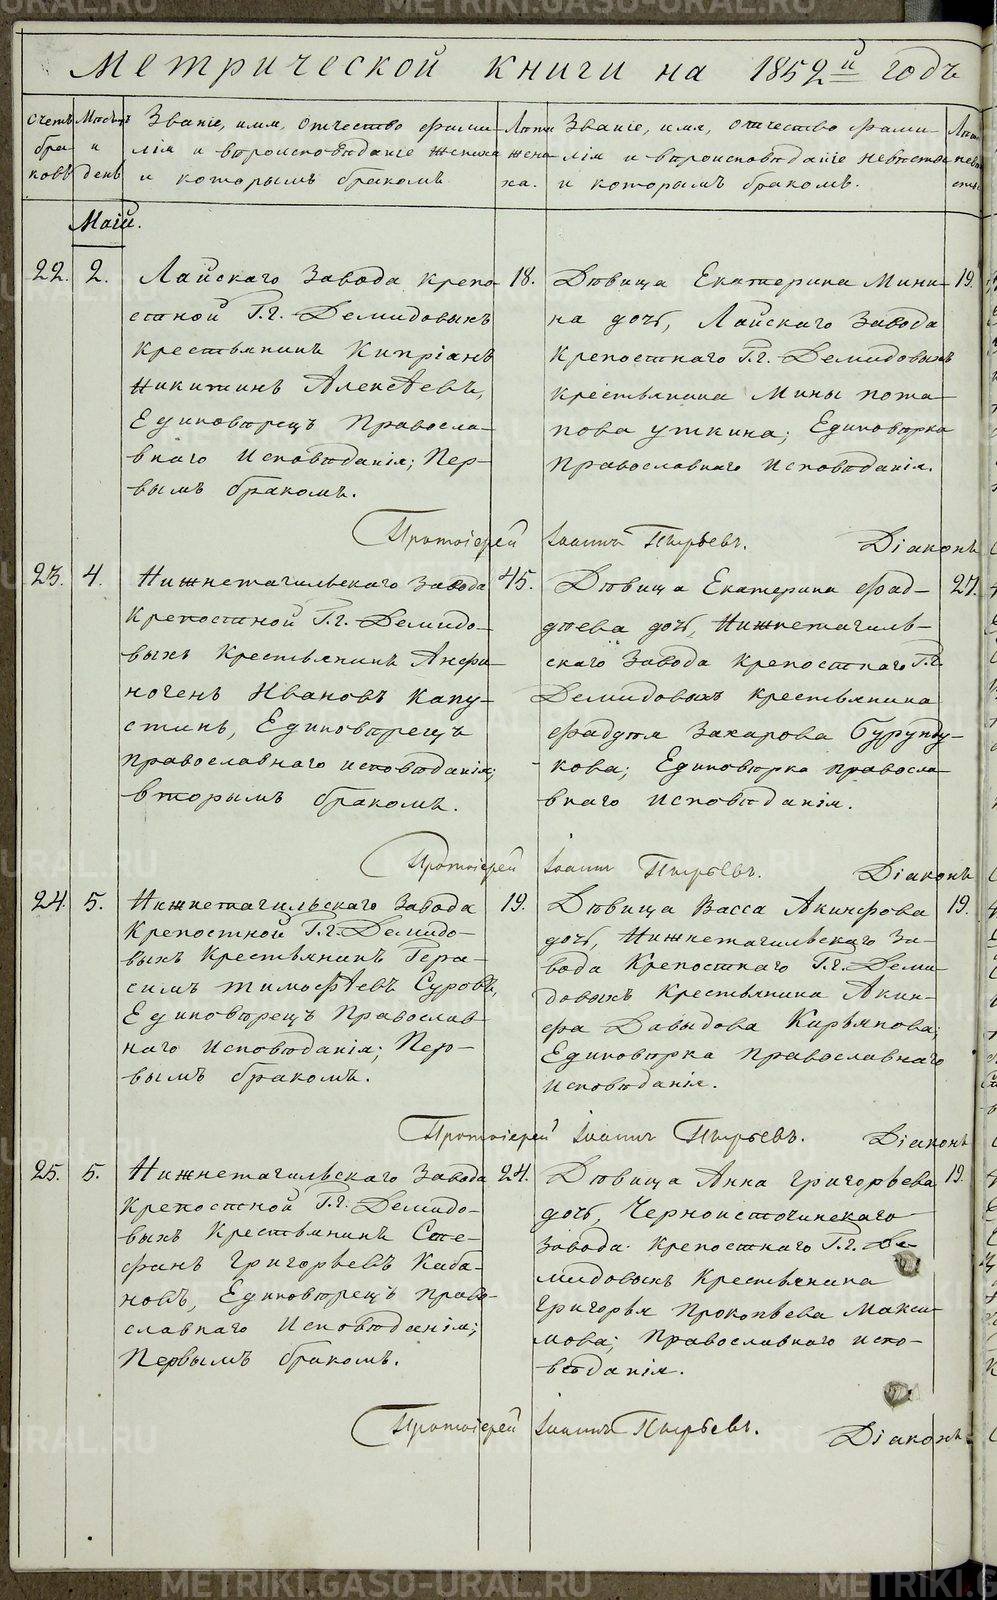 Метрической книги на 1852й годъ
Счетъ браковъ
Мѣсяцъ и день
Званіе, имя, отчество фами-
лія и вѣроисповѣданіе жениха
и которымъ бракомъ.
Лѣта жениха.
Званіе, имя, отчество фами-
лія и вѣроисповѣданіе невѣсты
и которымъ бракомъ.
Маій.
22. 2.
Лайскаго Завода крепо-
стной Г.г. Демидовыхъ
крестьянинъ Кипріанъ
Никитинъ Алексѣевъ,
Единовѣрецъ Правосла-
внаго Исповѣданія; Пер-
вымъ бракомъ.
18.
Дѣвица Екатерина Мини-
на дочь, Лайскаго Завода
Крепостнаго Г.г. Демидовыхъ
крестьянина Мины пота-
пова уткина; Единовѣрка
Православнаго Исповѣданія.
19.
Протоіерей Іоаннъ Пырьевъ. Діаконъ
23. 4.
Нижнетагильскаго Завода
Крепостной Г.г. Демидо-
выхъ Крестьянинъ Анфи-
ногенъ Ивановъ Капу-
стинъ, Единовѣрецъ
православнаго исповѣданія;
вторымъ бракомъ.
45.
Дѣвица Екатерина фад-
дѣева дочь, Нижнетагиль-
скаго Завода крепостнаго Г.г.
Демидовыхъ крестьянина
фаддѣя Захарова Бурунду-
кова; Единовѣрка правосла-
внаго Исповѣданія.
27.
Протоіерей Іоаннъ Пырьевъ. Діаконъ
24. 5.
Нижнетагильскаго Завода
Крепостной Г.г. Демидо-
выхъ Крестьянинъ Гера-
симъ тимофѣевъ Суровъ,
Единовѣрецъ Православ-
наго Исповѣданія; Пер-
вымъ бракомъ.
19.
Дѣвица Васса Акинфова
дочь, Нижнетагильскаго За-
вода Крепостнаго Г.г. Деми-
довыхъ Крестьянина Акин-
фа Давыдова Кирьянова;
Единовѣрка православнаго
исповѣданія.
19.
Протоіерей Іоаннъ Пырьевъ. Діаконъ
25. 5.
Нижнетагильскаго Завода
Крепостной Г.г. Демидо-
выхъ Крестьянинъ Сте-
фанъ Григорьевъ Каба-
новъ, Единовѣрецъ право-
славнаго Исповѣданія;
Первымъ бракомъ.
24.
Дѣвица Анна Григорьева
дочь, Черноисточинскаго
Завода Крепостнаго Г.г. Де-
мидовыхъ Крестьянина
Григорья Прокопьева Макси-
мова; Православнаго испо-
вѣданія.
19.
Протоіерей Іоаннъ Пырьевъ. Діаконъ
METRIKI.GASO-URAL.RU